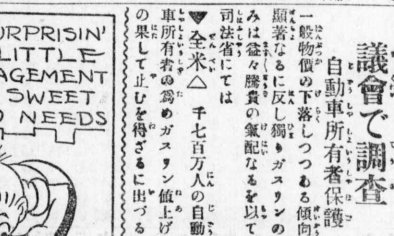 議會で調査
自動車所有者保護
一般物價の下落しつつある傾向
顯著なるに反し獨りガスリンの
みは益々騰貴の氣配なるを以て
司法省にては
▼全米△ 千七百万人の自動
車所有者の爲めガスリン値上げ
の果して止むを得ざるに出づる
URPRISIN'
LITTLE
AGEMENT
SWEET
NEEDS